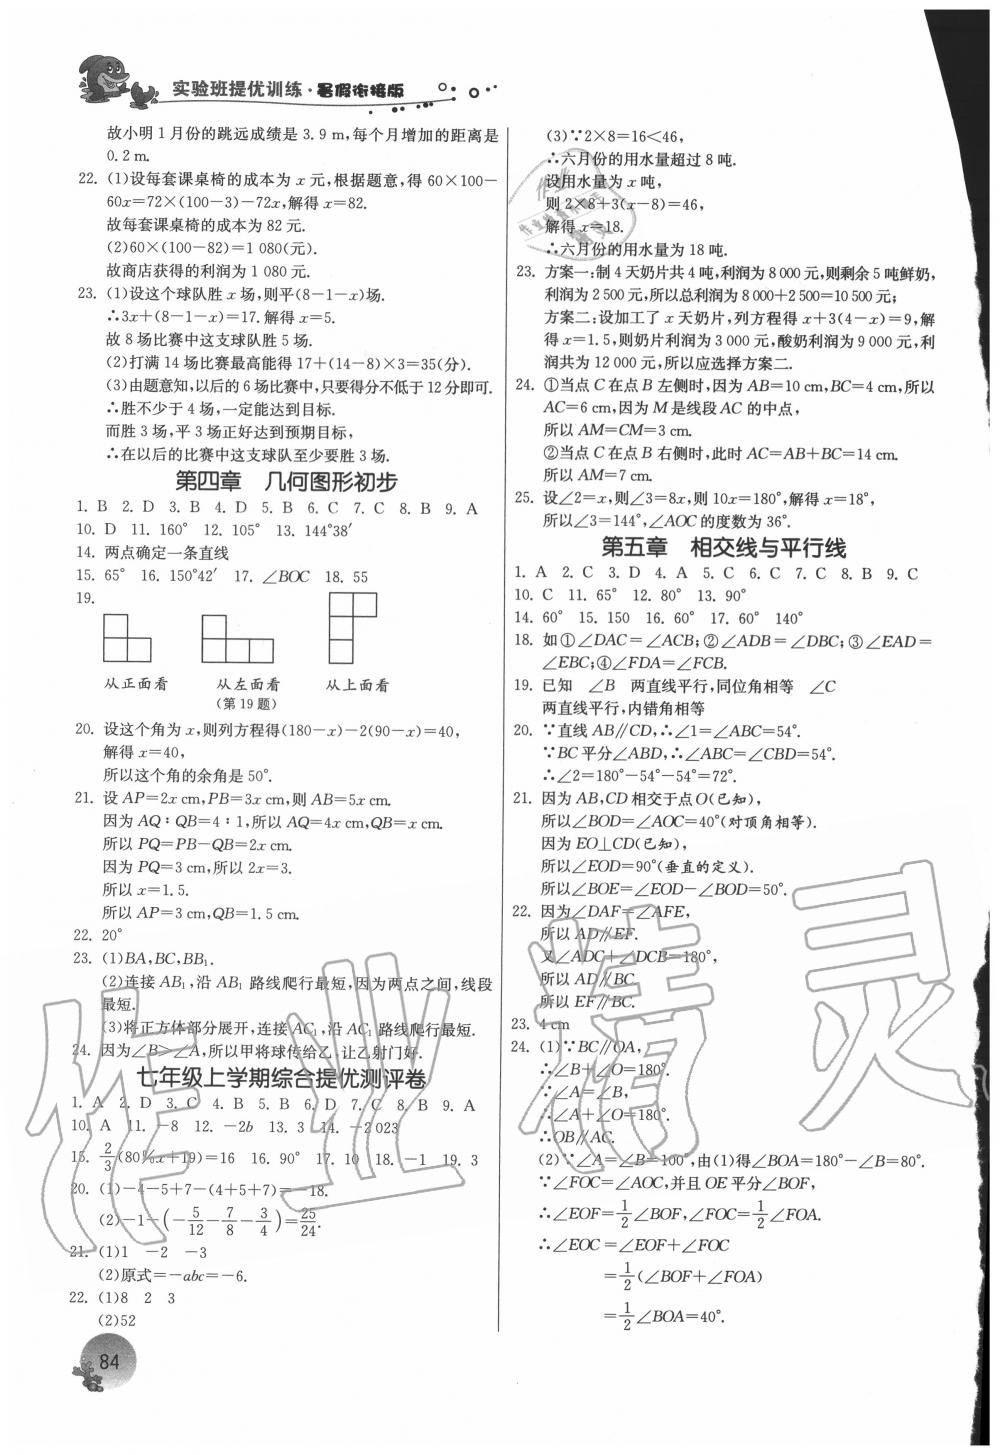 实验班提优训练·暑假衔接版
故小明1月份的跳远成绩是3.9 m,每个月增加的距离是
0.2 m.
22. (1)设每套课桌椅的成本为x元,根据题意,得60×100-
60x=72×(100-3)-72x,解得x=82.
故每套课桌椅的成本为82元.
(2)60×(100-82)=1 080(元).
故商店获得的利润为1 080元.
23. (1)设这个球队胜x场,则平(8-1-x)场.
∴3x+(8-1-x)=17.解得x=5.
故8场比赛中这支球队胜5场.
(2)打满14场比赛最高能得17+(14-8)×3=35(分).
(3)由题意知,以后的6场比赛中,只要得分不低于12分即可.
∴胜不少于4场,一定能达到目标.
而胜3场,平3场正好达到预期目标,
∴在以后的比赛中这支球队至少要胜3场.
第四章 几何图形初步
1. B 2. D 3. B 4. D 5. B 6. C 7. C 8. B 9. A
10. D 11. 160° 12. 105° 13. 144°38′
14. 两点确定一条直线
15. 65° 16. 150°42′ 17. ∠BOC 18. 55
19.
从正面看 从左面看 从上面看
(第19题)
20. 设这个角为x,则列方程得(180-x)-2(90-x)=40,
解得x=40,
所以这个角的余角是50°.
21. 设AP=2x cm,PB=3x cm,则AB=5x cm.
因为AQ∶QB=4∶1,所以AQ=4x cm,QB=x cm.
所以PQ=PB-QB=2x cm.
因为PQ=3 cm,所以2x=3.
所以x=1.5.
所以AP=3 cm,QB=1.5 cm.
22. 20°
23. (1)BA,BC,BB₁.
(2)连接AB₁,沿AB₁路线爬行最短,因为两点之间,线段
最短.
(3)将正方体部分展开,连接AC₁,沿AC₁路线爬行最短.
24. 因为∠B>∠A,所以甲将球传给乙,让乙射门好.
七年级上学期综合提优测评卷
1. A 2. D 3. C 4. B 5. B 6. D 7. C 8. B 9. A
10. A 11. -8 12. -2b 13. 3 14. -2 023
15. 2/3(80%x+19)=16 16. 90° 17. 10 18. -1 19. 3
20. (1)-4-5+7-(4+5+7)=-18.
(2)-1-(-5/12-7/8-3/4)=25/24.
21. (1)1 -2 -3
(2)原式=-abc=-6.
22. (1)8 2 3
(2)52
84
(3)∵2×8=16<46,
∴六月份的用水量超过8吨.
设用水量为x吨,
则2×8+3(x-8)=46,
解得x=18.
∴六月份的用水量为18吨.
23. 方案一:制4天奶片共4吨,利润为8 000元,则剩余5吨鲜奶,
利润为2 500元,所以总利润为8 000+2 500=10 500元;
方案二:设加工了x天奶片,列方程得x+3(4-x)=9,解
得x=1.5,则奶片利润为3 000元,酸奶利润为9 000元,利
润共为12 000元,所以应选择方案二.
24. ①当点C在点B左侧时,因为AB=10 cm,BC=4 cm,所以
AC=6 cm,因为M是线段AC的中点,
所以AM=CM=3 cm.
②当点C在点B右侧时,此时AC=AB+BC=14 cm.
所以AM=7 cm.
25. 设∠2=x,则∠3=8x,则10x=180°,解得x=18°,
所以∠3=144°,∠AOC的度数为36°.
第五章 相交线与平行线
1. A 2. C 3. D 4. A 5. C 6. C 7. C 8. B 9. C
10. C 11. 65° 12. 80° 13. 90°
14. 60° 15. 150 16. 60° 17. 60° 140°
18. 如①∠DAC=∠ACB;②∠ADB=∠DBC;③∠EAD=
∠EBC;④∠FDA=∠FCB.
19. 已知 ∠B 两直线平行,同位角相等 ∠C
两直线平行,内错角相等
20. ∵直线AB∥CD,∴∠1=∠ABC=54°.
∵BC平分∠ABD,∴∠ABC=∠CBD=54°.
∴∠2=180°-54°-54°=72°.
21. 因为AB,CD相交于点O(已知),
所以∠BOD=∠AOC=40°(对顶角相等).
因为EO⊥CD(已知),
所以∠EOD=90°(垂直的定义).
所以∠BOE=∠EOD-∠BOD=50°.
22. 因为∠DAF=∠AFE,
所以AD∥EF.
又∠ADC+∠DCB=180°,
所以AD∥BC.
所以EF∥BC.
23. 4 cm
24. (1)∵BC∥OA,
∴∠B+∠O=180°.
∵∠A=∠B,
∴∠A+∠O=180°.
∴OB∥AC.
(2)∵∠A=∠B=100°,由(1)得∠BOA=180°-∠B=80°.
∵∠FOC=∠AOC,并且OE平分∠BOF,
∴∠EOF=1/2∠BOF,∠FOC=1/2∠FOA.
∴∠EOC=∠EOF+∠FOC
=1/2(∠BOF+∠FOA)
=1/2∠BOA=40°.
作业精灵